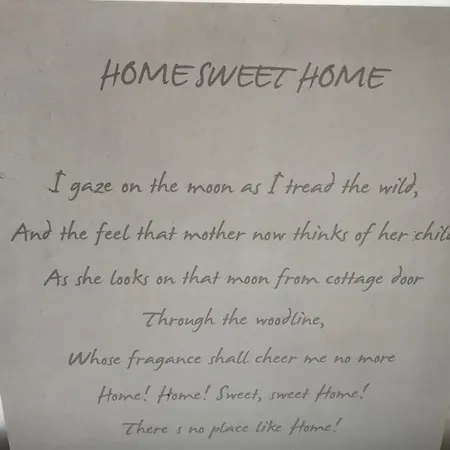 HOME SWEET HOME
I gaze on the moon as I tread the wild,
And the feel that mother now thinks of her chil
As she looks on that moon from cottage door
Through the woodline,
Whose fragance shall cheer me no more
Home! Home! Sweet, sweet Home!
There s no place like Home!